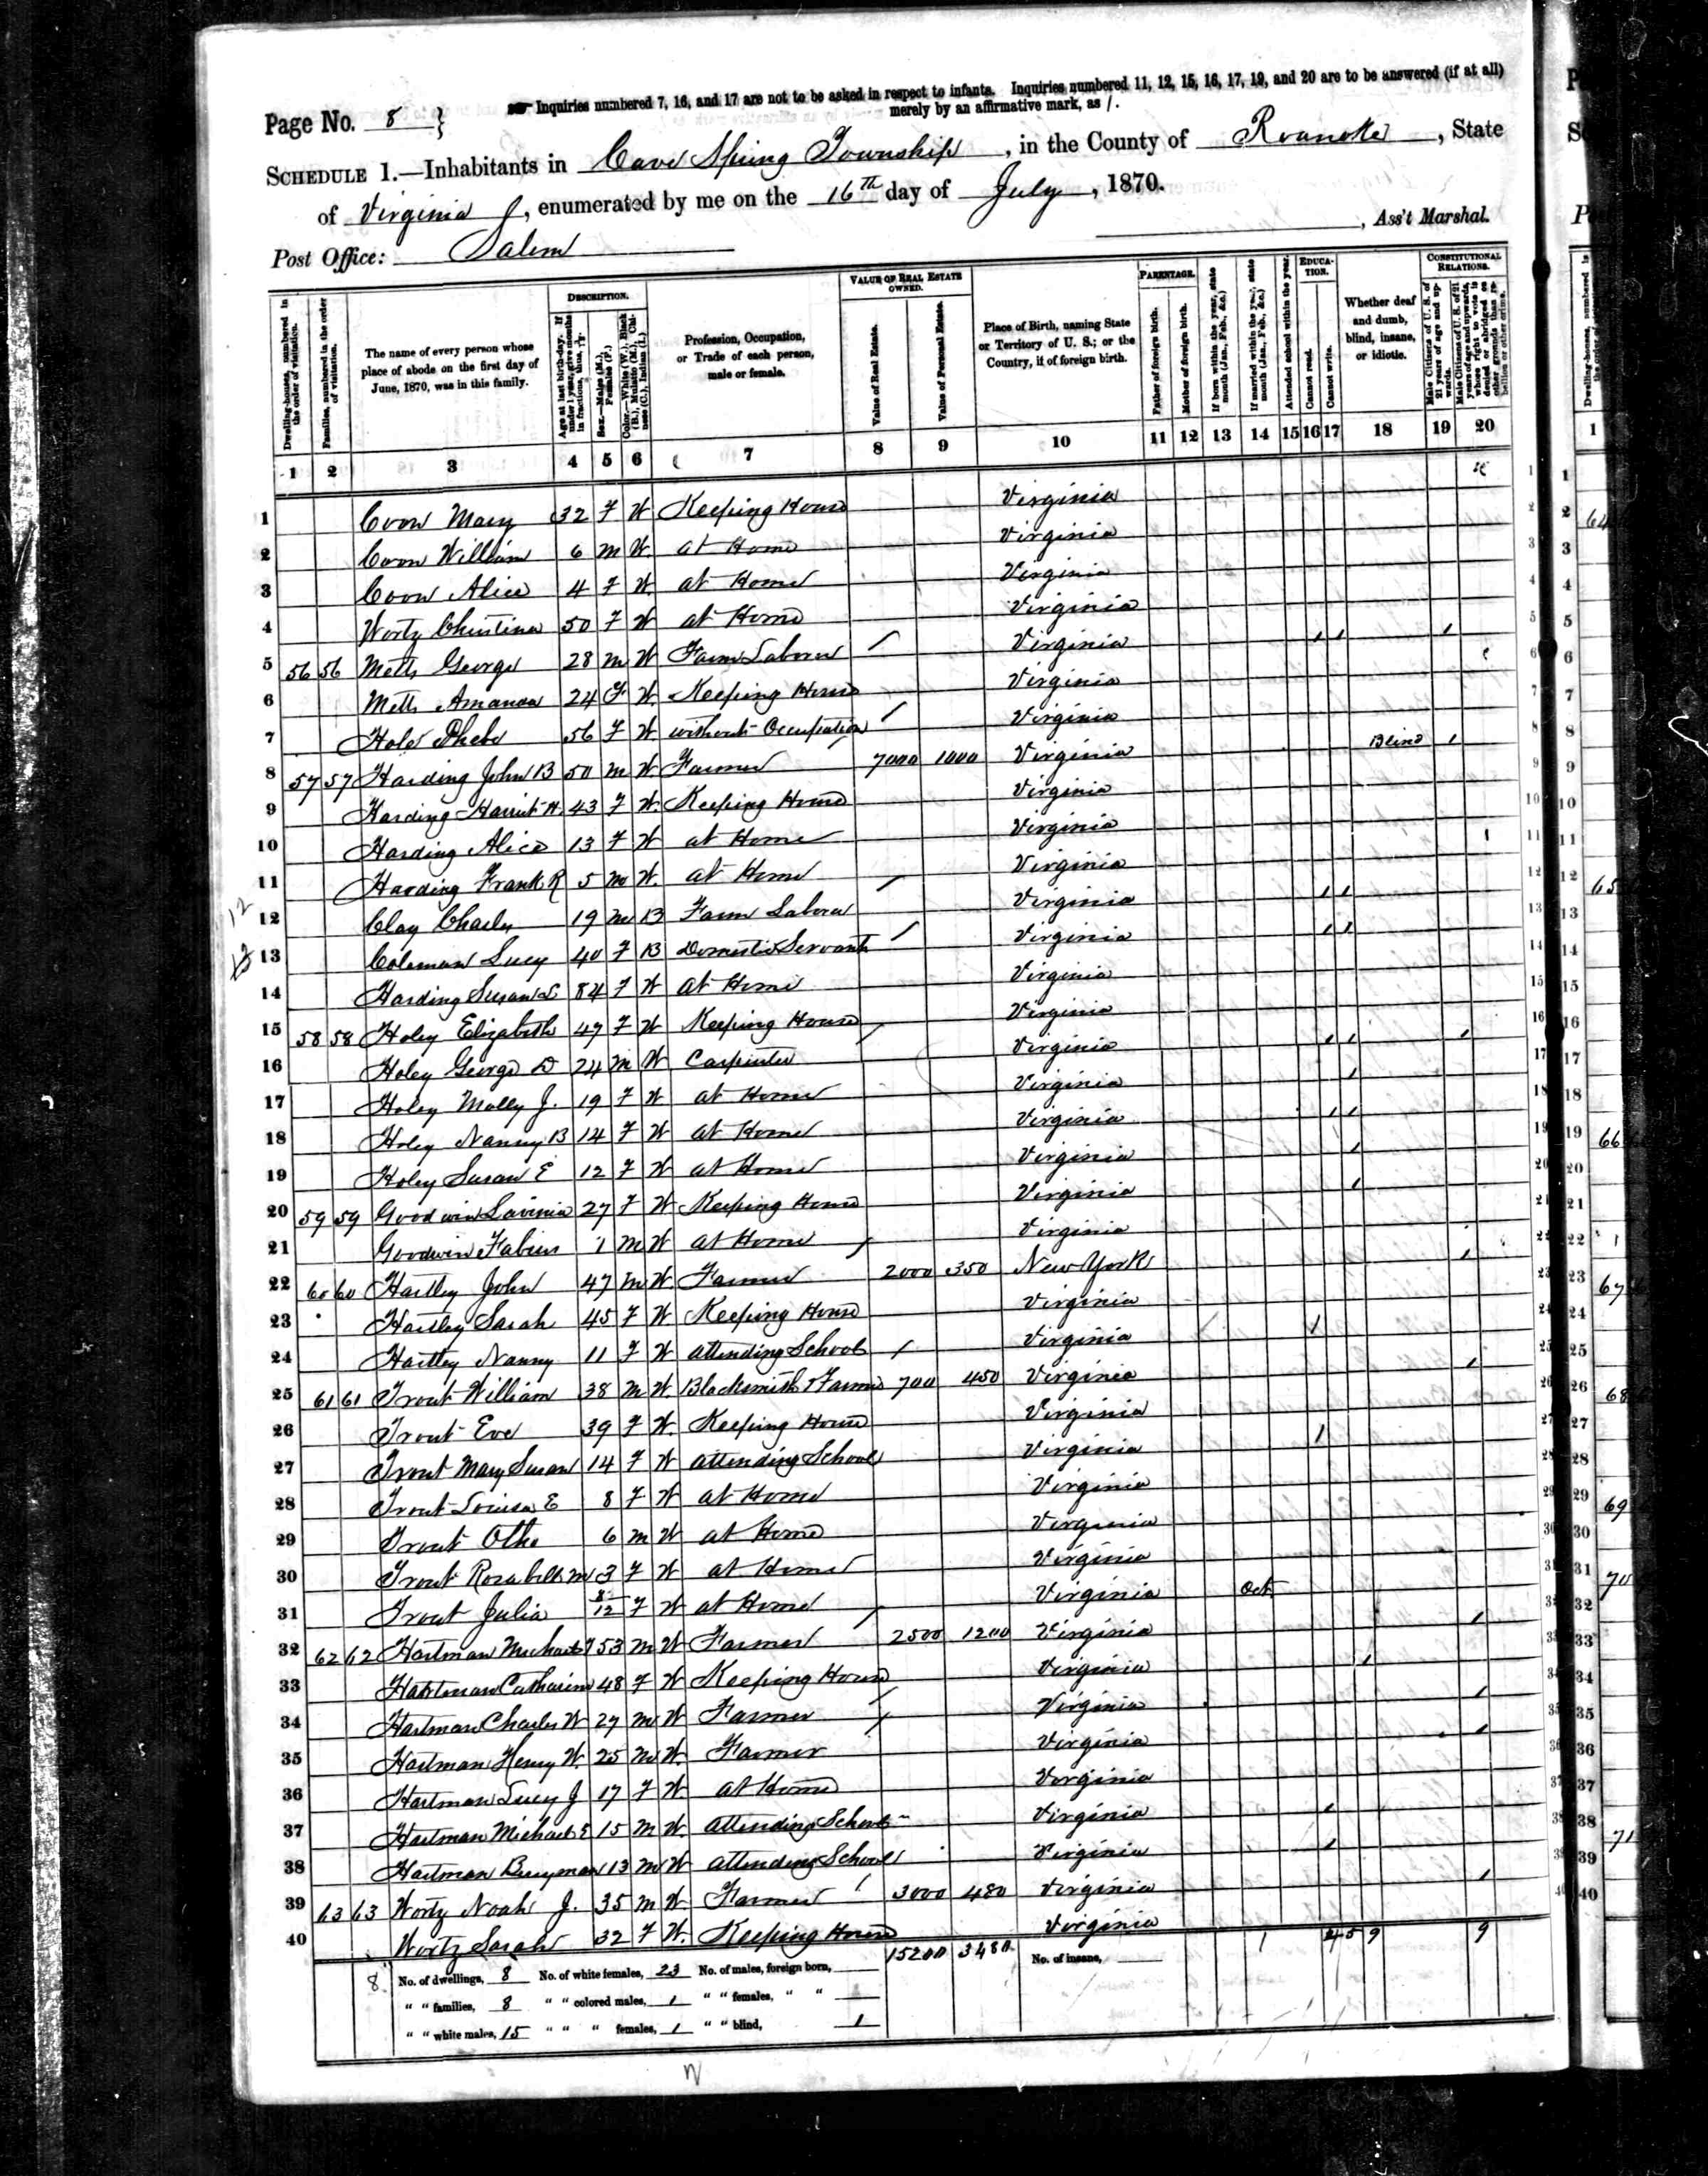 Page No. 8 }
Inquiries numbered 7, 16, and 17 are not to be asked in respect to infants. Inquiries numbered 11, 12, 15, 16, 17, 19, and 20 are to be answered (if at all)
merely by an affirmative mark, as /.
SCHEDULE 1.—Inhabitants in Cave Spring Township, in the County of Roanoke, State
of Virginia, enumerated by me on the 16th day of July, 1870.
Post Office: Salem
, Ass't Marshal.
Dwelling-houses, numbered in the order of visitation.
Families, numbered in the order of visitation.
The name of every person whose place of abode on the first day of June, 1870, was in this family.
DESCRIPTION.
Age at last birth-day. If under 1 year, give months in fractions, thus, 3/12.
Sex.—Males (M.), Females (F.)
Color.—White (W.), Black (B.), Mulatto (M.), Chinese (C.), Indian (I.)
Profession, Occupation, or Trade of each person, male or female.
VALUE OF REAL ESTATE OWNED.
Value of Real Estate.
Value of Personal Estate.
Place of Birth, naming State or Territory of U. S.; or the Country, if of foreign birth.
PARENTAGE.
Father of foreign birth.
Mother of foreign birth.
If born within the year, state month (Jan., Feb., &c.)
If married within the year, state month (Jan., Feb., &c.)
Attended school within the year.
EDUCATION.
Cannot read.
Cannot write.
Whether deaf and dumb, blind, insane, or idiotic.
CONSTITUTIONAL RELATIONS.
Male Citizens of U. S. of 21 years of age and upwards.
Male Citizens of U. S. of 21 years of age and upwards, whose right to vote is denied or abridged on other grounds than rebellion or other crime.
1 2 3 4 5 6 7 8 9 10 11 12 13 14 15 16 17 18 19 20
1 Coon Mary 32 F W Keeping House Virginia
2 Coon William 6 M W at Home Virginia
3 Coon Alice 4 F W at Home Virginia
4 Wortz Christina 50 F W at Home Virginia
5 56 56 Metts George 28 M W Farm Laborer / Virginia / / /
6 Metts Amanda 24 F W Keeping House Virginia
7 Phebe 56 F W without Occupation / Virginia
8 57 57 Harding John B 50 M W Farmer 7000 1000 Virginia Blind /
9 Harding Harriet H. 43 F W Keeping House Virginia
10 Harding Alice 13 F W at Home Virginia
11 Harding Frank R 5 M W at Home Virginia
12 Clay Charles 19 M B Farm Laborer / Virginia / /
13 Coleman Lucy 40 F B Domestic Servant / Virginia / /
14 Harding Susan S 84 F W at Home Virginia
15 58 58 Holey Elizabeth 47 F W Keeping House Virginia
16 Holey George D 24 M W Carpenter / Virginia / / /
17 Holey Molly J. 19 F W at Home Virginia /
18 Holey Nanny B 14 F W at Home Virginia / /
19 Holey Susan E 12 F W at Home Virginia /
20 59 59 Goodwin Lavinia 27 F W Keeping House Virginia /
21 Goodwin Fabius 1 M W at Home Virginia
22 60 60 Hartley John 47 M W Farmer / 2000 350 New York /
23 Hartley Sarah 45 F W Keeping House Virginia
24 Hartley Nanny 11 F W attending School Virginia /
25 61 61 Trout William 38 M W Blacksmith & Farmer / 700 450 Virginia /
26 Trout Eve 39 F W Keeping House Virginia
27 Trout Mary Susan 14 F W attending School Virginia /
28 Trout Louisa E 8 F W at Home Virginia
29 Trout Otho 6 M W at Home Virginia
30 Trout Rosabell M 3 F W at Home Virginia
31 Trout Julia 8/12 F W at Home Virginia Oct
32 62 62 Hartman Michael 53 M W Farmer / 2500 1200 Virginia /
33 Hartman Catharine 48 F W Keeping House Virginia /
34 Hartman Charles W 27 M W Farmer / Virginia /
35 Hartman Henry W. 25 M W Farmer / Virginia /
36 Hartman Lucy J 17 F W at Home Virginia
37 Hartman Michael E 15 M W attending School Virginia /
38 Hartman Berryman 13 M W attending School Virginia /
39 63 63 Wortz Noah J. 35 M W Farmer / 3000 480 Virginia /
40 Wortz Sarah 32 F W Keeping House Virginia
15200 3480 1 4 5 9 9
8 No. of dwellings, 8 No. of white females, 23 No. of males, foreign born, No. of insane,
" " families, 8 " " colored males, 1 " " females, " "
" " white males, 15 " " " females, 1 " " blind, 1